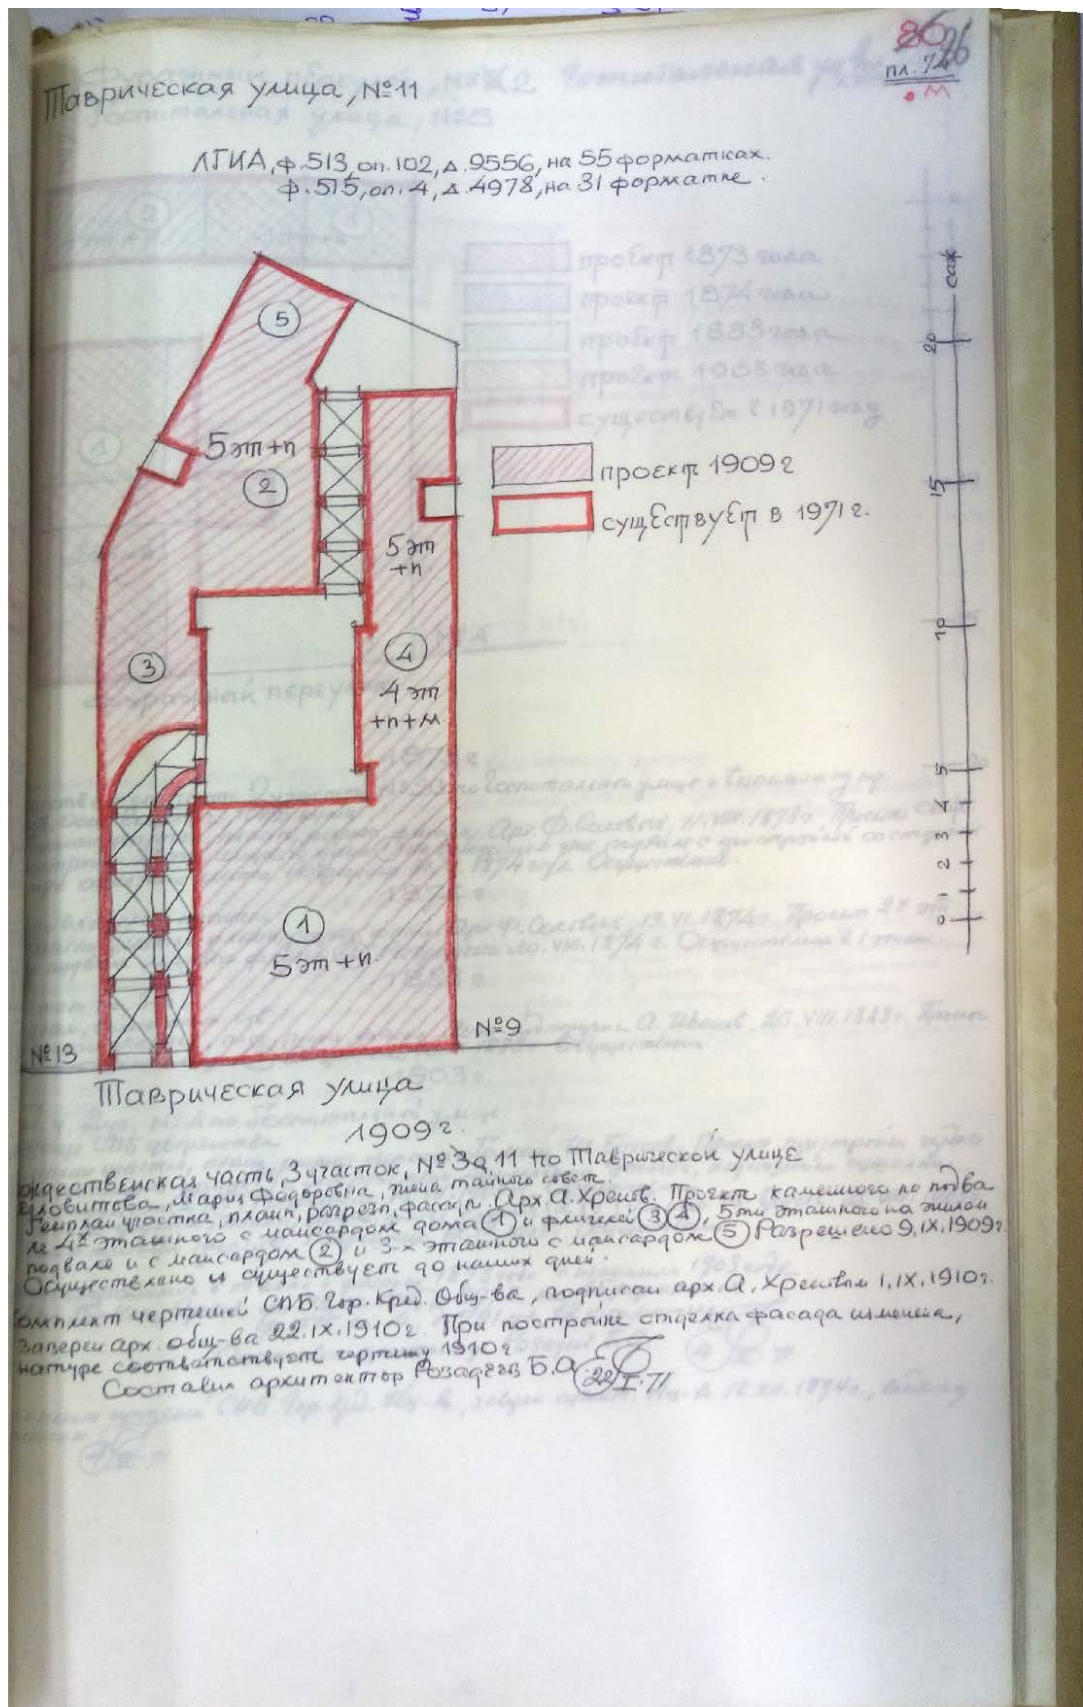 80 26
пл. 74
м
Таврическая улица, №11
ЛГИА, ф.513, оп.102, д.9556, на 55 форматках.
ф.515, оп.4, д.4978, на 31 форматке.
саж
20
15
10
5
4
3
2
1
0
5
5 эт+п
2
проект 1909 г
существует в 1971 г.
5 эт
+п
3
4
4 эт
+п+м
1
5 эт+п
№13
№9
Таврическая улица
1909 г.
часть, 3 участок, №3а, 11 по Таврической улице
Мария Федоровна, жена тайного совет.
Генплан участка, план, разрез, фасад. Арх А. Хренов. Проект каменного на подва
ле 4х этажного с мансардом дома 1 и флигелей 3 4, 5ти этажного на жилом
подвале и с мансардом 2 и 3-х этажного с мансардом 5 Разрешено 9.IX.1909г.
Осуществлено и существует до наших дней.
Комплект чертежей СПБ. Гор. Кред. Общ-ва, подписан арх. А. Хреновым 1.IX.1910г.
Заверен арх. общ-ва 22.IX.1910г. При постройке отделка фасада изменена,
натуре соответствует чертежу 1910г
Составил архитектор Розадеев Б.А. 22 I.71